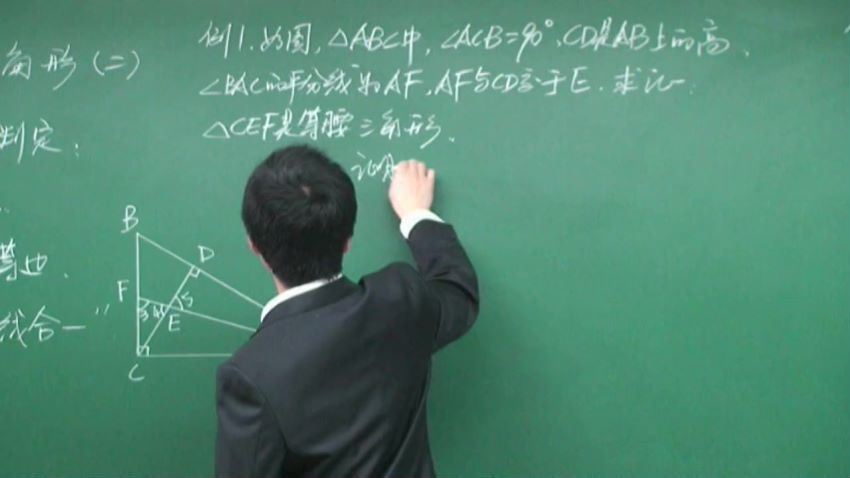 角形(二)
判定：
等边.
线合一"
例1.如图，△ABC中，∠ACB=90°，CD是AB上的高，
∠BAC的平分线为AF，AF与CD交于E.求证：
△CEF是等腰三角形.
证
B
D
F
5
3
4
E
C